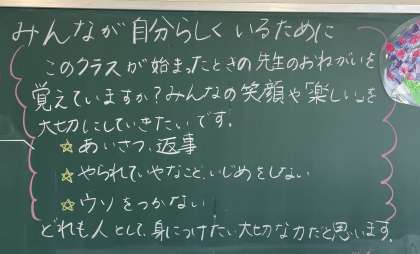 みんなが自分らしくいるために
このクラスが始まったときの先生のおねがいを
覚えていますか？みんなの笑顔や「楽しい」を
大切にしていきたいです。
☆あいさつ、返事
☆やられていやなこと、いじめをしない
☆ウソをつかない
どれも人として、身につけたい大切な力だと思います。